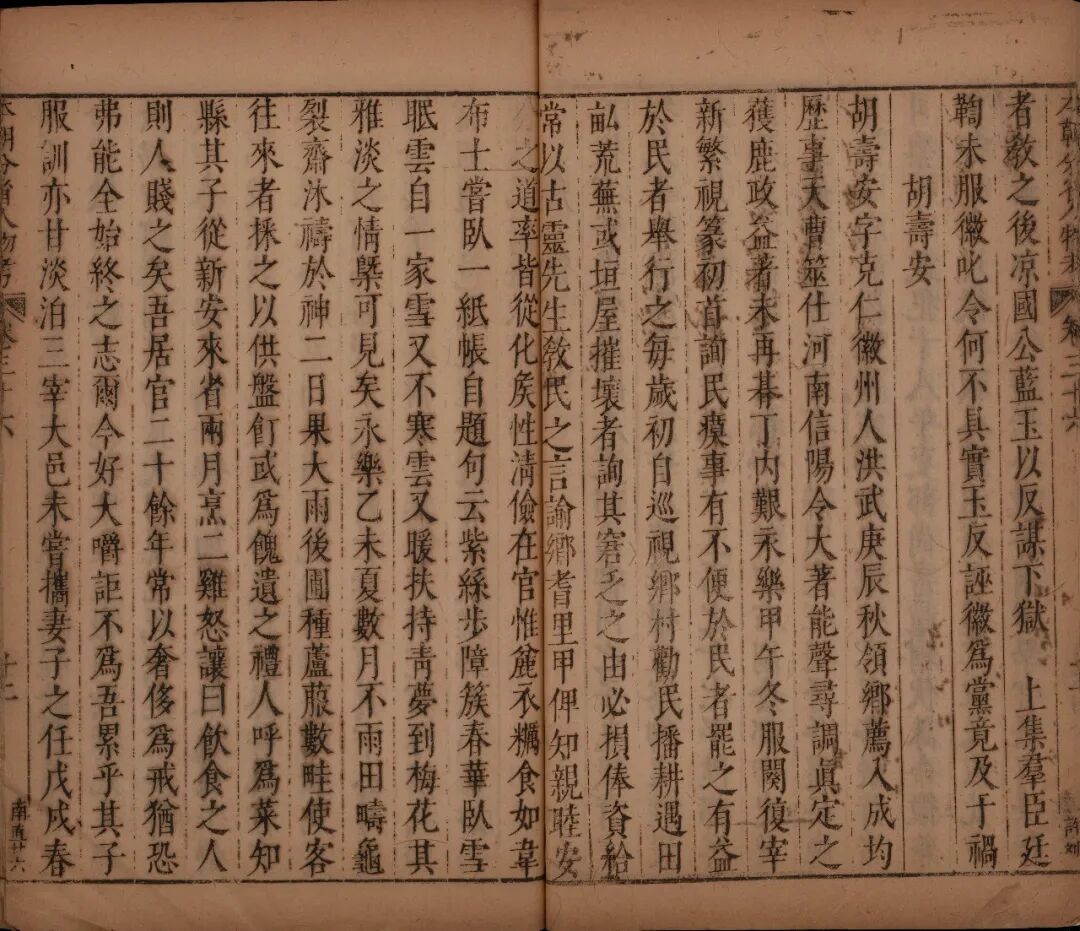 本朝分省人物考 卷三十六
者敎之後凉國公藍玉以反謀下獄 上集羣臣廷
鞫未服徽叱令何不具實玉反誣徽爲黨竟及于禍
胡壽安
胡壽安字克仁徽州人洪武庚辰秋領鄉薦入成均
歷事天曹筮仕河南信陽令大著能聲尋調眞定之
獲鹿政益著未再朞丁内艱永樂甲午冬服闋復宰
新繁視篆初首詢民瘼事有不便於民者罷之有益
於民者舉行之每歲初自巡視鄉村勸民播耕遇田
畆荒蕪或垣屋摧壞者詢其窘乏之由必損俸資給
常以古靈先生敎民之言諭鄉耆里甲俾知親睦安
分之道率皆從化矦性淸儉在官惟麄衣糲食如韋
布士嘗臥一紙帳自題句云紫絲步障簇春華臥雪
眠雲自一家雪又不寒雲又暖扶持靑夢到梅花其
雅淡之情槩可見矣永樂乙未夏數月不雨田疇龜
裂齋沐禱於神二日果大雨後圃種蘆菔數畦使客
往來者採之以供盤飣或爲餽遺之禮人呼爲菜知
縣其子從新安來省兩月烹二雞怒讓曰飮食之人
則人賤之矣吾居官二十餘年常以奢侈爲戒猶恐
弗能全始終之志爾今好大嚼詎不爲吾累乎其子
服訓亦甘淡泊三宰大邑未嘗攜妻子之任戊戌春
本朝分省人物考 卷三十六
十二
南直廿六